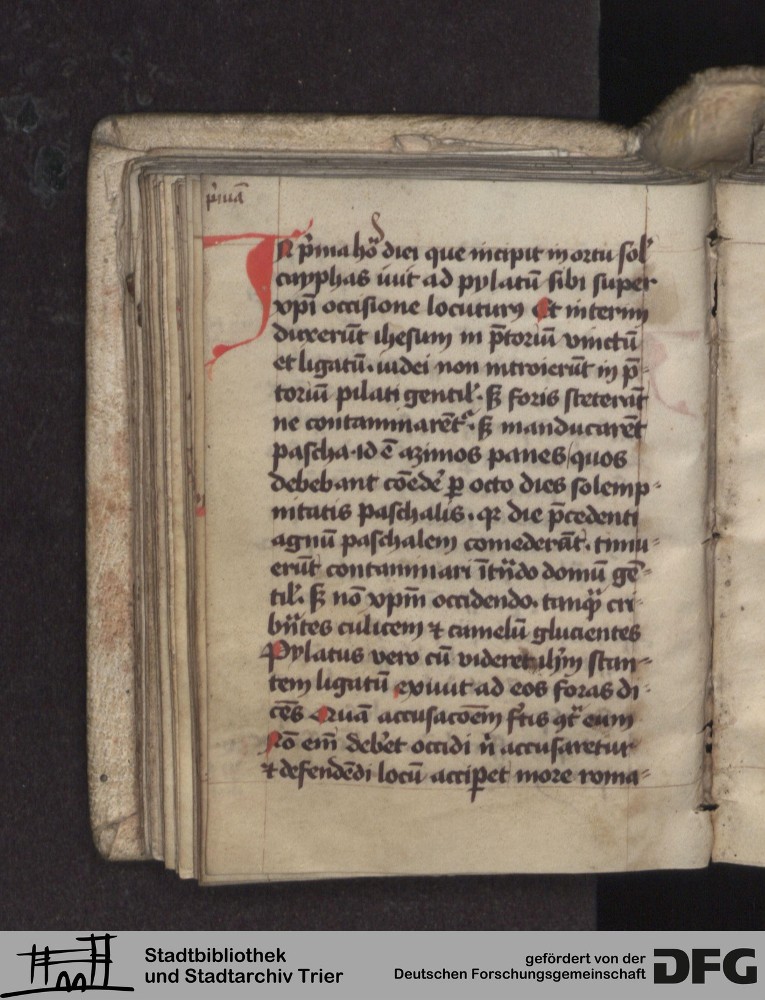 p̄mā
IN p̄ma hō diei que incipit in ortu sol̕
cayphas iuit ad pylatū sibi super
xp̄i occisione locuturꝯ Et interim
duxerūt ihesum in p̄toriū vinctū
et ligatū. iudei non introierūt in p̄-
toriū pilati gentil̕. sꝫ foris steterūt
ne contaminarēt᷑. sꝫ manducarēt
pascha. id ē azimos panes quos
debebant cōedē ꝑ octo dies solemp-
nitatis paschalis. qꝛ die p̄cedenti
agnū paschalem comederāt. timu-
erūt contaminari ītn̄do domū gē-
til̕. sꝫ nō xp̄m occidendo. tanq̄ cri-
bn̄tes culicem ⁊ camelū glucientes
Pylatus vero cū videret ih̄m stan-
tem ligatū exiuit ad eos foras di-
cēs Quā accusacōem f̄tis 9t̄ eum
Nō em̄ debet occidi n̄ accusaretur
⁊ defendēdi locū acciꝑet more roma-
Stadtbibliothek
und Stadtarchiv Trier
gefördert von der
Deutschen Forschungsgemeinschaft
DFG